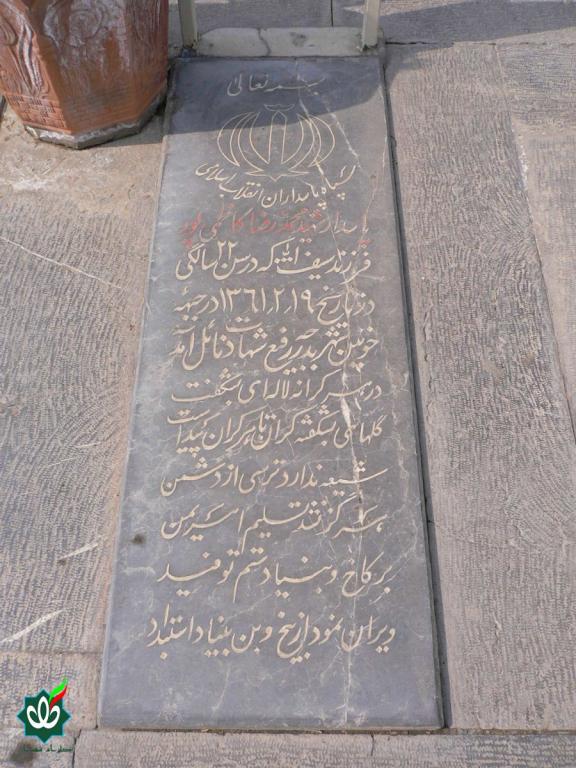 بسمه تعالی
سپاه پاسداران انقلاب اسلامی
پاسدار شهید محمد رضا کاظمی پور
فرزند سیف الله که در سن ۲۲ سالگی
در تاریخ ۱۳۶۱,۲,۱۹ در جبهه
خونین شهر بدرجه رفیع شهادت نائل آمد
در هر کرانه لاله ای بشگفت
گلهائی بشگفته کران تا هر کران پیداست
شیعه ندارد ترسی از دشمن
هرگز نشد تسلیم اهریمن
بر کاخ و بنیاد ستم توفید
ویران نمود از بیخ و بن بنیاد استبداد